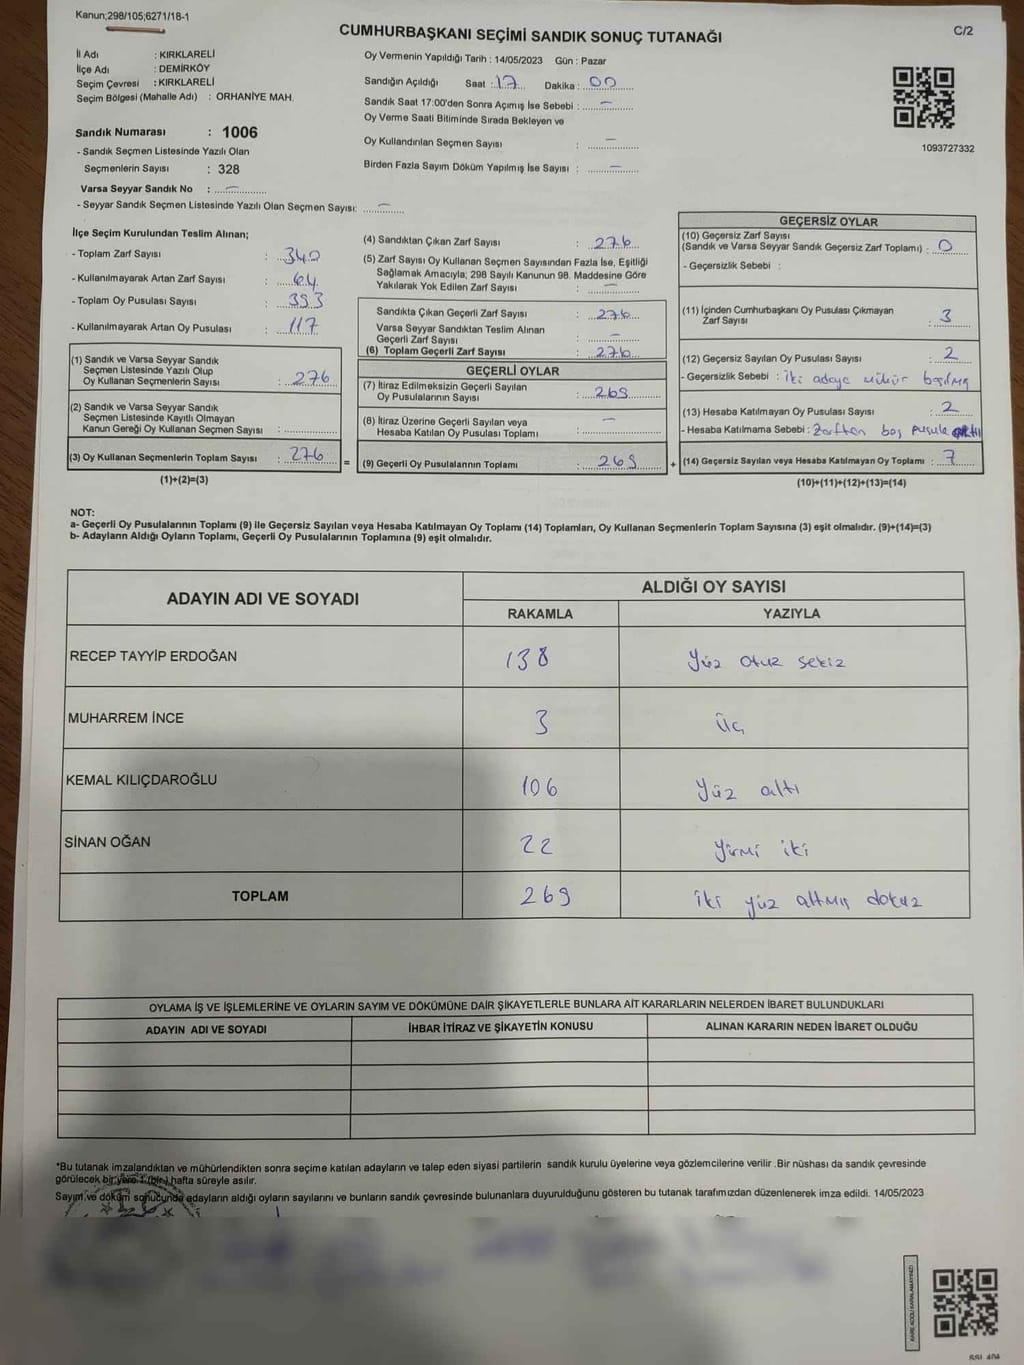 Kanun;298/105;6271/18-1
CUMHURBAŞKANI SEÇİMİ SANDIK SONUÇ TUTANAĞI
C/2
İl Adı : KIRKLARELİ
İlçe Adı : DEMİRKÖY
Seçim Çevresi : KIRKLARELİ
Seçim Bölgesi (Mahalle Adı) : ORHANİYE MAH.
Sandık Numarası : 1006
- Sandık Seçmen Listesinde Yazılı Olan
Seçmenlerin Sayısı : 328
Varsa Seyyar Sandık No : –
- Seyyar Sandık Seçmen Listesinde Yazılı Olan Seçmen Sayısı: –
Oy Vermenin Yapıldığı Tarih : 14/05/2023 Gün : Pazar
Sandığın Açıldığı Saat : 17 Dakika : 00
Sandık Saat 17:00'den Sonra Açımış İse Sebebi : –
Oy Verme Saati Bitiminde Sırada Bekleyen ve
Oy Kullandırılan Seçmen Sayısı : –
Birden Fazla Sayım Döküm Yapılmış İse Sayısı : –
1093727332
İlçe Seçim Kurulundan Teslim Alınan;
- Toplam Zarf Sayısı : 340
- Kullanılmayarak Artan Zarf Sayısı : 64
- Toplam Oy Pusulası Sayısı : 393
- Kullanılmayarak Artan Oy Pusulası : 117
(1) Sandık ve Varsa Seyyar Sandık
Seçmen Listesinde Yazılı Olup
Oy Kullanan Seçmenlerin Sayısı : 276
(2) Sandık ve Varsa Seyyar Sandık
Seçmen Listesinde Kayıtlı Olmayan
Kanun Gereği Oy Kullanan Seçmen Sayısı :
(3) Oy Kullanan Seçmenlerin Toplam Sayısı : 276
(1)+(2)=(3)
(4) Sandıktan Çıkan Zarf Sayısı : 276
(5) Zarf Sayısı Oy Kullanan Seçmen Sayısından Fazla İse, Eşitliği
Sağlamak Amacıyla; 298 Sayılı Kanunun 98. Maddesine Göre
Yakılarak Yok Edilen Zarf Sayısı : –
Sandıkta Çıkan Geçerli Zarf Sayısı : 276
Varsa Seyyar Sandıktan Teslim Alınan
Geçerli Zarf Sayısı : –
(6) Toplam Geçerli Zarf Sayısı : 276
GEÇERLİ OYLAR
(7) İtiraz Edilmeksizin Geçerli Sayılan
Oy Pusulalarının Sayısı : 269
(8) İtiraz Üzerine Geçerli Sayılan veya
Hesaba Katılan Oy Pusulası Toplamı : –
= (9) Geçerli Oy Pusulalarının Toplamı : 269 +
GEÇERSİZ OYLAR
(10) Geçersiz Zarf Sayısı
(Sandık ve Varsa Seyyar Sandık Geçersiz Zarf Toplamı) : 0
- Geçersizlik Sebebi :
(11) İçinden Cumhurbaşkanı Oy Pusulası Çıkmayan
Zarf Sayısı : 3
(12) Geçersiz Sayılan Oy Pusulası Sayısı : 2
- Geçersizlik Sebebi : iki adaya mühür basılmış
(13) Hesaba Katılmayan Oy Pusulası Sayısı : 2
- Hesaba Katılmama Sebebi : Zarftan boş pusula
(14) Geçersiz Sayılan veya Hesaba Katılmayan Oy Toplamı : 7
(10)+(11)+(12)+(13)=(14)
NOT:
a- Geçerli Oy Pusulalarının Toplamı (9) ile Geçersiz Sayılan veya Hesaba Katılmayan Oy Toplamı (14) Toplamları, Oy Kullanan Seçmenlerin Toplam Sayısına (3) eşit olmalıdır. (9)+(14)=(3)
b- Adayların Aldığı Oyların Toplamı, Geçerli Oy Pusulalarının Toplamına (9) eşit olmalıdır.
ADAYIN ADI VE SOYADI
ALDIĞI OY SAYISI
RAKAMLA YAZIYLA
RECEP TAYYİP ERDOĞAN 138 Yüz otuz sekiz
MUHARREM İNCE 3 Üç
KEMAL KILIÇDAROĞLU 106 Yüz altı
SİNAN OĞAN 22 Yirmi iki
TOPLAM 269 iki yüz altmış dokuz
OYLAMA İŞ VE İŞLEMLERİNE VE OYLARIN SAYIM VE DÖKÜMÜNE DAİR ŞİKAYETLERLE BUNLARA AİT KARARLARIN NELERDEN İBARET BULUNDUKLARI
ADAYIN ADI VE SOYADI İHBAR İTİRAZ VE ŞİKAYETİN KONUSU ALINAN KARARIN NEDEN İBARET OLDUĞU
*Bu tutanak imzalandıktan ve mühürlendikten sonra seçime katılan adayların ve talep eden siyasi partilerin sandık kurulu üyelerine veya gözlemcilerine verilir .Bir nüshası da sandık çevresinde
görülecek bir yere 1 (bir) hafta süreyle asılır.
Sayım ve döküm sonucunda adayların aldığı oyların sayılarını ve bunların sandık çevresinde bulunanlara duyurulduğunu gösteren bu tutanak tarafımızdan düzenlenerek imza edildi. 14/05/2023
KARE KODU KARALAMAYINIZ!